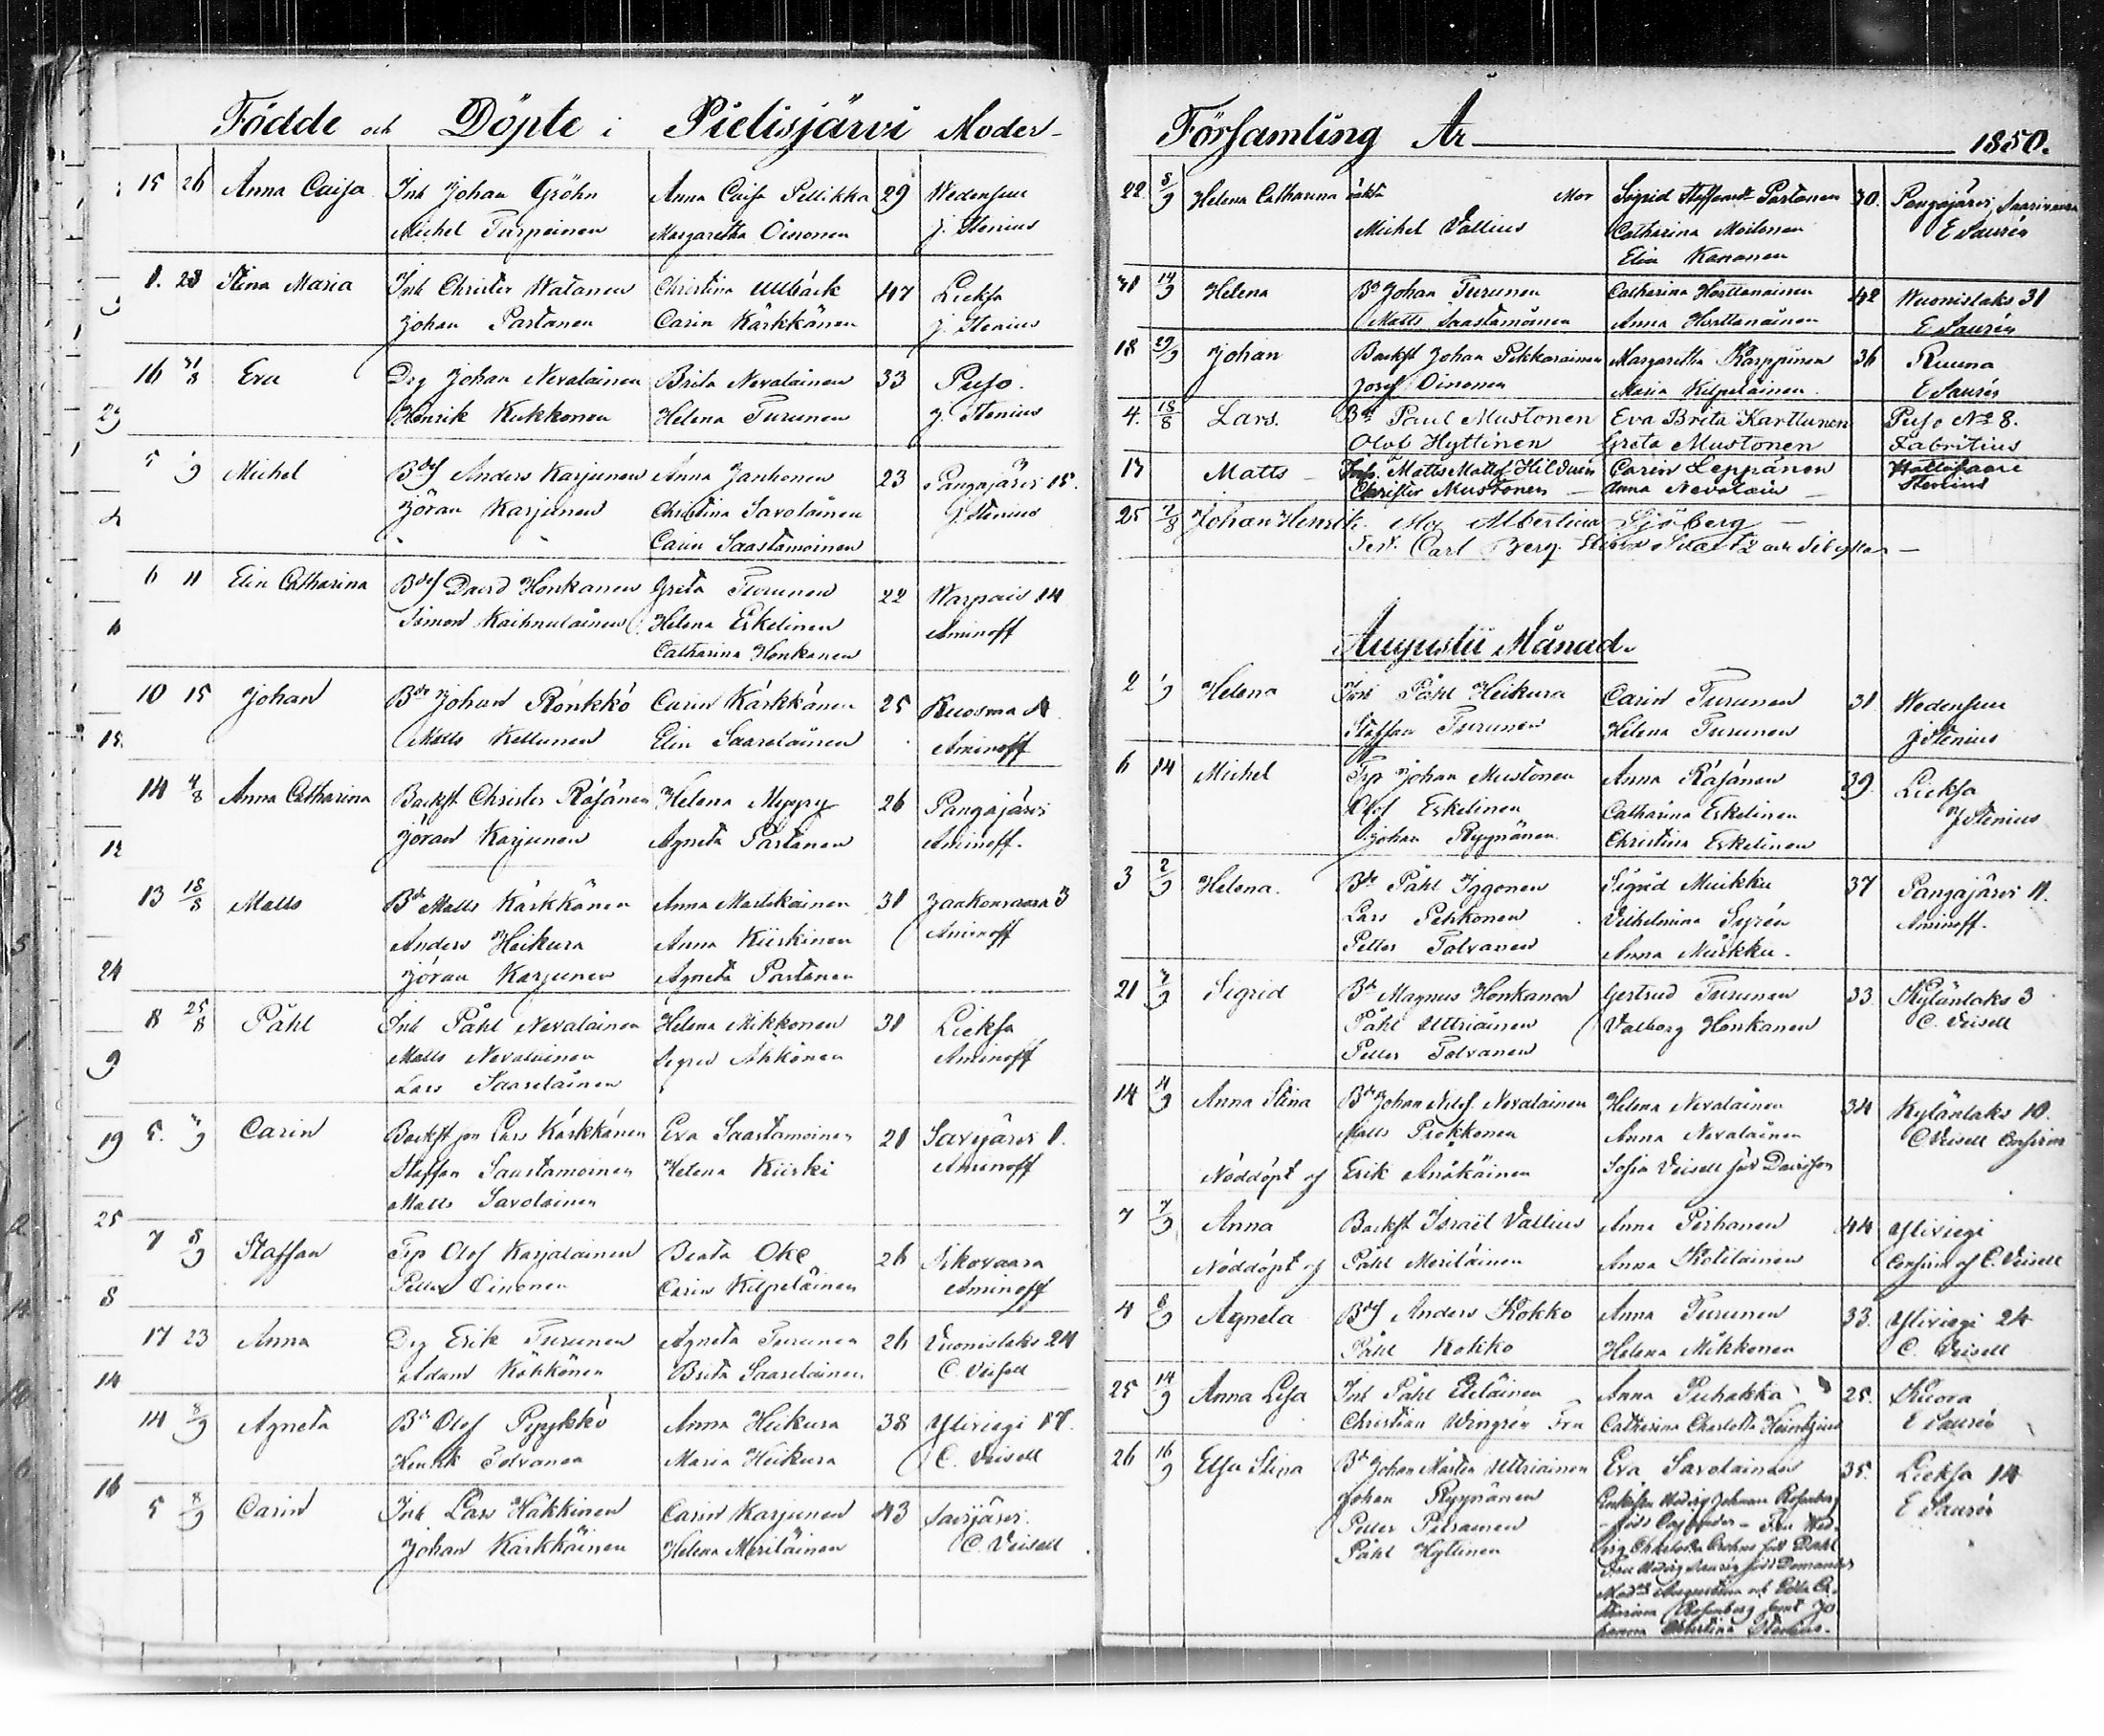 Födde och Döpte i Pielisjärvi Moder-
15 26 Anna Caisa Inh Johan Gröhn Anna Caisa Pellikka 29 Wedensuu
Michel Turpeinen Margaretha Oinonen J. Stenius
1. 28 Stina Maria Inh Christer Watanen Christina Ullbäck 47 Lieksa
Johan Partanen Carin Kärkkänen J. Stenius
16 31/8 Eva Drg Johan Nevalainen Brita Nevalainen 33 Puso.
Henrik Kukkonen Helena Turunen J. Stenius
5 1/9 Michel Bds Anders Karjunen Anna Janhonen 23 Pangajärvi 15.
Jöran Karjunen Christina Savolainen J. Stenius
" " Carin Saastamoinen
6 11 Elin Catharina Bds David Honkanen Greta Turunen 22 Warpais 14
Simon Kaihnulainen Helena Eskelinen Aminoff
Catharina Honkanen
10 15 Johan Bde Johan Rönkkö Carin Kärkkänen 25 Ruosma
Matts Kettunen Elin Saarelainen Aminoff
14 4/8 Anna Catharina Backst Christer Räsänen Helena Myyry 26 Pangajärvi
Jöran Karjunen Agneta Partanen Aminoff.
13 18/8 Matts Bde Matts Kärkkänen Anna Martikainen 31 Jaakonvaara 3
Anders Heikura Anna Kiiskinen Aminoff
Jöran Karjunen Agneta Partanen
8 25/8 Påhl Inh Påhl Nevalainen Helena Mikkonen 31 Lieksa
Matts Nevalainen Sigrid Ahkonen Aminoff
Lars Saarelainen
5. 7/9 Carin Backst son Lars Kärkkänen Eva Saastamoinen 21 Savijärvi 1.
Staffan Saastamoinen Helena Kiiski Aminoff
Matts Savolainen
7 8/9 Staffan Trp Olof Karjalainen Beata Oke 26 Sikovaara
Petter Oinonen Carin Kilpeläinen Aminoff
17 23 Anna Drg Erik Turunen Agneta Turunen 26 Vuonislaks 24
Adam Kökkönen Brita Saarelainen C. Veisell
14 8/9 Agneta Bde Olof Pyykkö Anna Heikura 38 Yliviegi 17.
Henrik Tolvanen Maria Heikura C. Veisell
5 8/9 Carin Inh Lars Häkkinen Carin Karjunen 43 Savijärvi.
Johan Kärkkäinen Helena Meriläinen C. Veisell
Församling År 1850.
22 8/9 Helena Catharina oäkta Mor Sigrid Staffansdr Partanen 30. Pangajärvi, Saarivaara
Michel Vallius Catharina Moilanen E Saurén
Elin Kononen
31 14/9 Helena Bde Johan Turunen Catharina Horttanainen 42 Wuonislaks 31
Matts Saastamoinen Anna Horttanainen E Saurén
18 29/9 Johan Backst Johan Pekkarainen Margaretha Karppinen 36 Ruuna
Josef Oinonen Maria Kilpeläinen. E Saurén
4. 18/8 Lars. Bde Paul Mustonen Eva Brita Karttunen Puso No 8.
Olof Hyttinen Greta Mustonen Fabritius
17 Matts Inh. Matts Mattss Hilduen Carin Leppänen
Christer Mustonen Anna Nevalain Stenius
25 7/8 Johan Henrik. Mor Albertina Sjöberg
Test. Carl Berg
Augustii Månad.
2 1/9 Helena Inh Påhl Heikura Carin Turunen 31 Wedensuu
Staffan Turunen Helena Turunen J Stenius
6 14 Michel Trp Johan Mustonen Anna Räsänen 39. Lieksa
Olof Eskelinen Catharina Eskelinen J Stenius
Johan Ryynänen Christina Eskelinen
3 2/9 Helena. Bde Påhl Iggonen Sigrid Muikku 37 Pangajärvi 11.
Lars Pehkonen Vilhelmina Syrén Aminoff.
Petter Tolvanen Anna Muikku.
21 7/9 Sigrid Bde Magnus Honkanen Gertrud Turunen 33. Kylänlaks 3
Påhl Uttriainen Valborg Honkanen C. Veisell
Petter Tolvanen
14 4/9 Anna Stina Bde Johan Nilss. Nevalainen Helena Nevalainen 34 Kylänlaks 10.
Matts Piokkonen Anna Nevalainen C Veisell Confirm
Nöddöpt af Erik Anåkäinen Sofia Veisell född Davidson
7 7/9 Anna Backst Israël Vallius Anna Pirhonen 44 Yliviegi
Nöddöpt af Påhl Meriläinen Anna Kotilainen Confirm af C. Veisell
4 8/9 Agneta Bds Anders Kokko Anna Turunen 33. Yliviegi 24
Påhl Kokko Helena Mikkonen C. Veisell
25 14/9 Anna Lisa Inh Påhl Eteläinen Anna Puhakka 25. Kuora
Christian Wingrén Fru Catharina Charlotta Heintzius E Saurén
26 16/9 Elsa Stina Bde Johan Mårten Uttriainen Eva Savolainen 35. Lieksa 14
Johan Ryynänen E Saurén
Petter Piirainen
Påhl Hyttinen